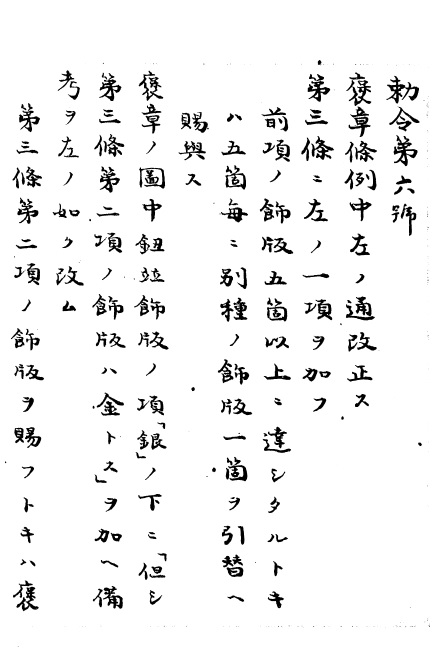 勅令第六號
褒章條例中左ノ通改正ス
第三條ニ左ノ一項ヲ加フ
前項ノ飾版五箇以上ニ達シタルトキ
ハ五箇每ニ別種ノ飾版一箇ヲ引替ヘ
賜與ス
褒章ノ圖中鈕竝飾版ノ項「銀」ノ下ニ「但シ
第三條第二項ノ飾版ハ金トス」ヲ加ヘ備
考ヲ左ノ如ク改ム
第三條第二項ノ飾版ヲ賜フトキハ褒